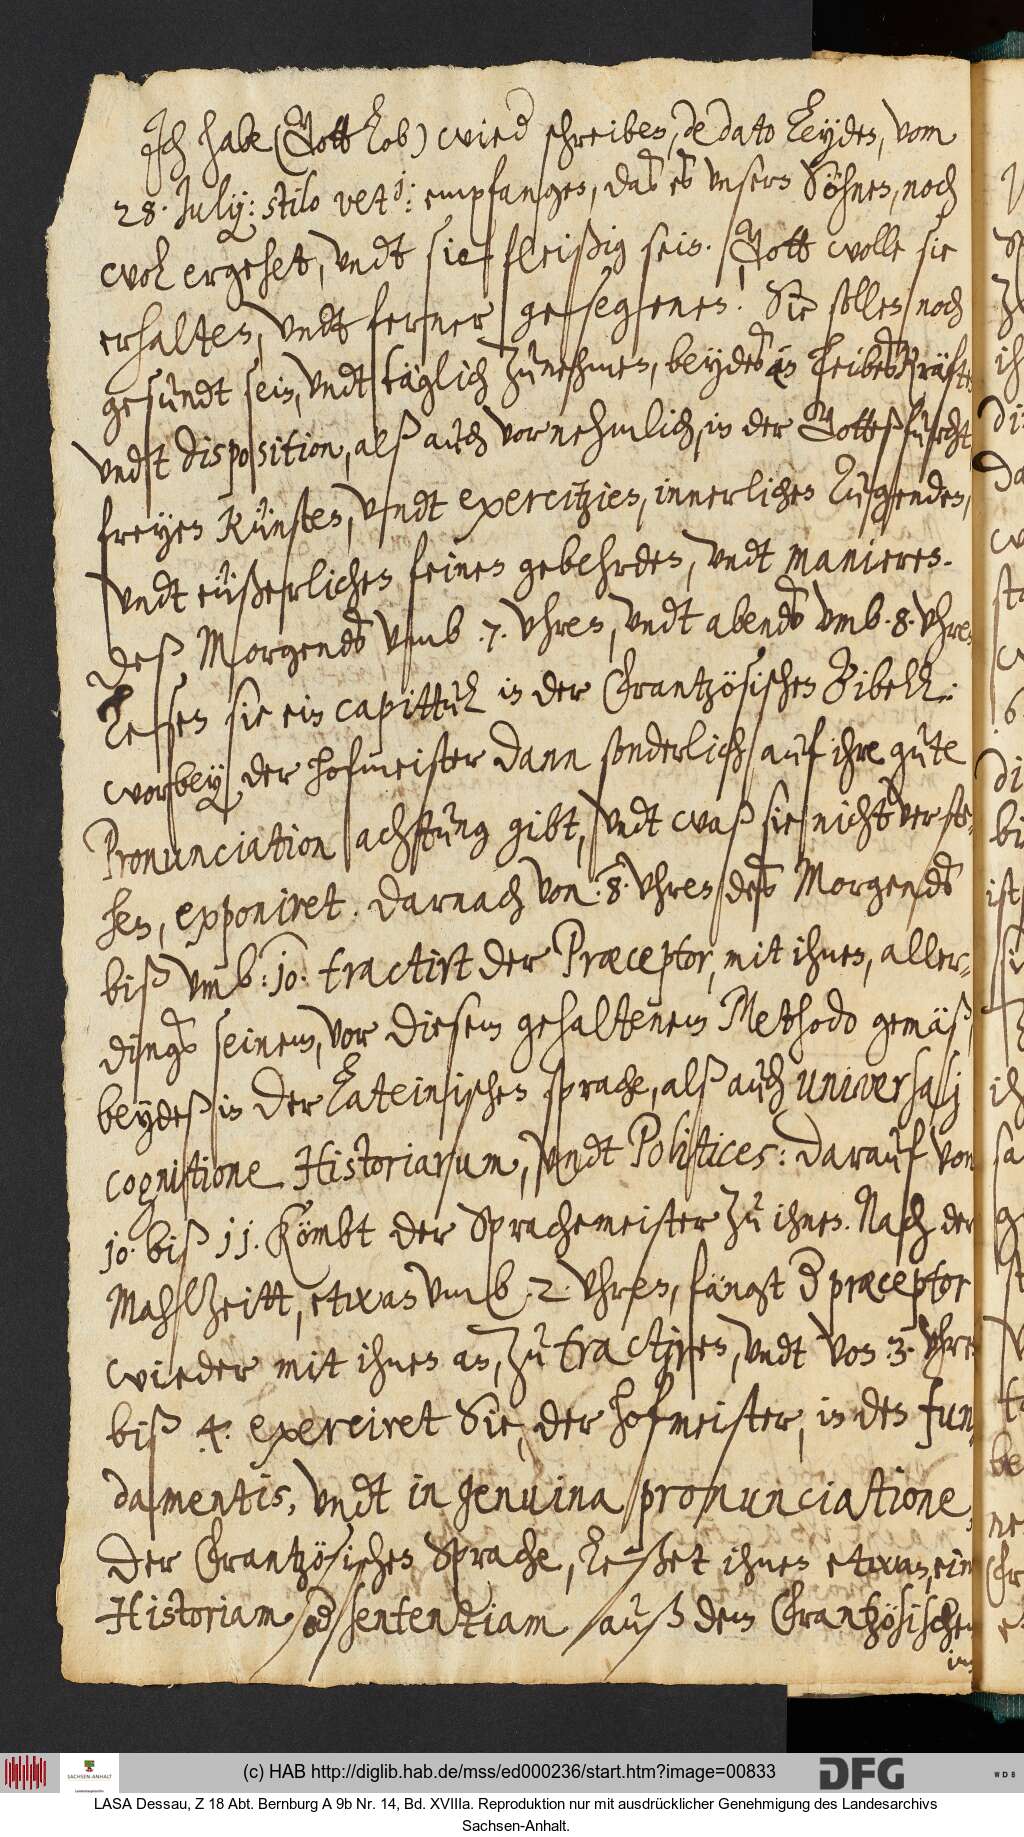 Ich habe (Gott Lob) wied schreiben, de dato Leyden, vom
28. Julij: stilo vet:ⁱ: empfangen, daß es unsern Söhnen, noch
wol ergehet, vndt sie fleißig sein. Gott wolle sie
erhalten, vndt ferner gesegenen! Sie sollen noch
gesundt sein, vndt täglich zunehmen, beydes in LeibesKräften
vndt disposition, alß auch vornehmlich, in der Gottesfurcht,
freyen Künsten, vndt exercitzien, innerlichen Tugenden,
vndt eüßerlichen feinen gebehrden, vndt manieren.
Deß Morgends vmb .7. vhren, vndt abends vmb .8. vhren
Lesen sie ein capittul in der Frantzösischen Bibell:
worbey der hofmeister dann sonderlich auf ihre gute
Pronunciation achtung gibt, vndt waß sie nicht verste-
hen, exponiret. Darnach von .8. vhren des Morgends
biß vmb: 10. tractirt der Præceptor, mit ihnen, aller-
dings seinem, vor diesem gehaltenem Methodo gemäß
beydeß in der Lateinischen sprache, alß auch universalj
cognitione Historiarum, vndt Politices: Darauf von
10. biß 11. Kömbt der Sprachemeister zu ihnen. Nach der
Mahlzeitt, etwan vmb .2. vhren, fängt d præceptor
wieder mit ihnen an, zu tractiren, vndt von 3. vhren
biß .4. exerciret Sie, der hofmeister, in den fun-
damentis, vndt in genuina pronunciatione,
der Frantzösischen Sprache, Leßet ihnen etwan, ein
Historiam od sententiam auß dem Frantzösischen
ins
(c) HAB http://diglib.hab.de/mss/ed000236/start.htm?image=00833
SACHSEN-ANHALT
DFG
WDB
LASA Dessau, Z 18 Abt. Bernburg A 9b Nr. 14, Bd. XVIIIa. Reproduktion nur mit ausdrücklicher Genehmigung des Landesarchivs
Sachsen-Anhalt.